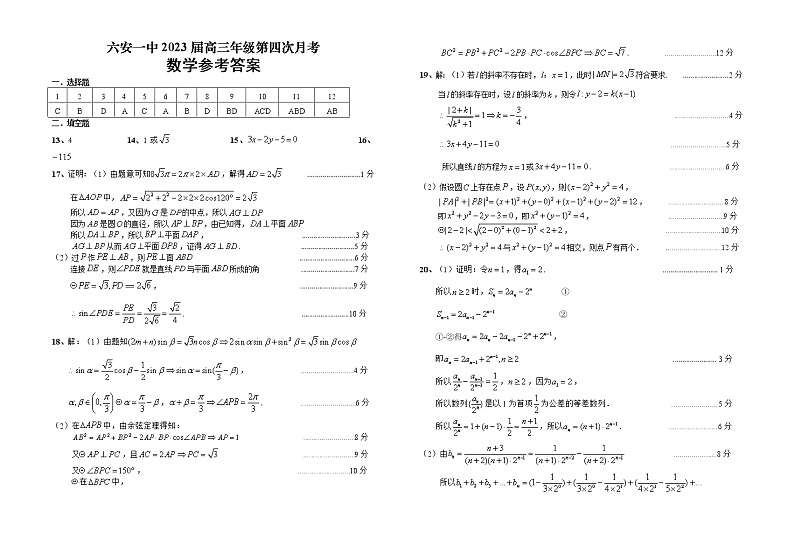 六安一中 2023 届高三年级第四次月考
数学参考答案
一．选择题
1 2 3 4 5 6 7 8 9 10 11 12
C B D A C A B D BD ACD ABD AB
二．填空题
13、4 14、1 或 √3 15、3x－2y－5＝0 16、
－115
17、证明：（1）由题意可知8√3π＝2π×2×AD，解得AD＝2√3 ............................1 分
在△AOP中，AP＝√(2²＋2²－2×2×2cos120°)＝2√3
所以AD＝AP，又因为G是DP的中点，所以AG⊥DP
因为AB是圆O的直径，所以AP⊥BP，由已知得，DA⊥平面ABP
所以DA⊥BP，所以BP⊥平面DAP， ............................3 分
AG⊥BP从而AG⊥平面DPB，证得AG⊥BD． ............................5 分
（2）过P作PE⊥AB，则PE⊥面ABD ............................6 分
连接DE，则∠PDE就是直线PD与平面ABD所成的角 ............................7 分
⊙PE＝√3,PD＝2√6， ............................9 分
∴sin∠PDE＝PE/PD＝√3/(2√6)＝√2/4． ............................10 分
18、解：（1）由题知(2m＋n)sinβ＝√3ncosβ⇒2sinαsinβ＋sin²β＝√3sinβcosβ
∴sinα＝(√3/2)cosβ－(1/2)sinβ⇒sinα＝sin(π/3－β)， ............................4 分
α,β∈(0,π/3)⊙α＝π/3－β，α＋β＝π/3⇒∠APB＝2π/3． ............................6 分
（2）在△APB中，由余弦定理得知：
AB²＝AP²＋BP²－2AP·BP·cos∠APB⇒AP＝1 ............................8 分
又⊙AP⊥PC，且AC＝2AP⇒PC＝√3 ............................9 分
又⊙∠BPC＝150°， ............................10 分
⊙在△BPC中，
BC²＝PB²＋PC²－2PB·PC·cos∠BPC⇒BC＝√7． ............................12 分
19、解：（1）若l的斜率不存在时，l：x＝1，此时|MN|＝2√3符合要求． ............................2 分
当l的斜率存在时，设l的斜率为k，则令l：y－2＝k(x－1)
∴|2＋k|/√(k²＋1)＝1⇒k＝－3/4， ............................4 分
∴3x＋4y－11＝0 ............................5 分
所以直线l的方程为x＝1或3x＋4y－11＝0． ............................6 分
（2）假设圆C上存在点P，设P(x,y)，则(x－2)²＋y²＝4，
|PA|²＋|PB|²＝(x＋1)²＋(y－0)²＋(x－1)²＋(y－2)²＝12， ............................8 分
即x²＋y²－2y－3＝0，即x²＋(y－1)²＝4， ............................9 分
⊙|2－2|<√((2－0)²＋(0－1)²)<2＋2， ............................10 分
∴(x－2)²＋y²＝4与x²＋(y－1)²＝4相交，则点P有两个． ............................12 分
20、（1）证明：令n＝1，得a₁＝2． ............................1 分
所以n≥2时，Sₙ＝2aₙ－2ⁿ ①
Sₙ₋₁＝2aₙ₋₁－2ⁿ⁻¹ ②
①-②得aₙ＝2aₙ－2aₙ₋₁－2ⁿ＋2ⁿ⁻¹，
即aₙ＝2aₙ₋₁＋2ⁿ⁻¹,n≥2 ............................3 分
所以aₙ/2ⁿ－aₙ₋₁/2ⁿ⁻¹＝1/2，n≥2，因为a₁＝2，
所以数列{aₙ/2ⁿ}是以1为首项1/2为公差的等差数列． ............................5 分
所以aₙ/2ⁿ＝1＋(n－1)·1/2＝(n＋1)/2，所以aₙ＝(n＋1)·2ⁿ⁻¹． ............................6 分
（2）由bₙ＝(n＋3)/((n＋2)(n＋1)·2ⁿ⁻¹)＝1/((n＋1)·2ⁿ⁻²)－1/((n＋2)·2ⁿ⁻¹) ............................8 分
所以b₁＋b₂＋b₃＋...＋bₙ＝(1－1/(3×2⁰))＋(1/(3×2⁰)－1/(4×2¹))＋(1/(4×2¹)－1/(5×2²))＋...